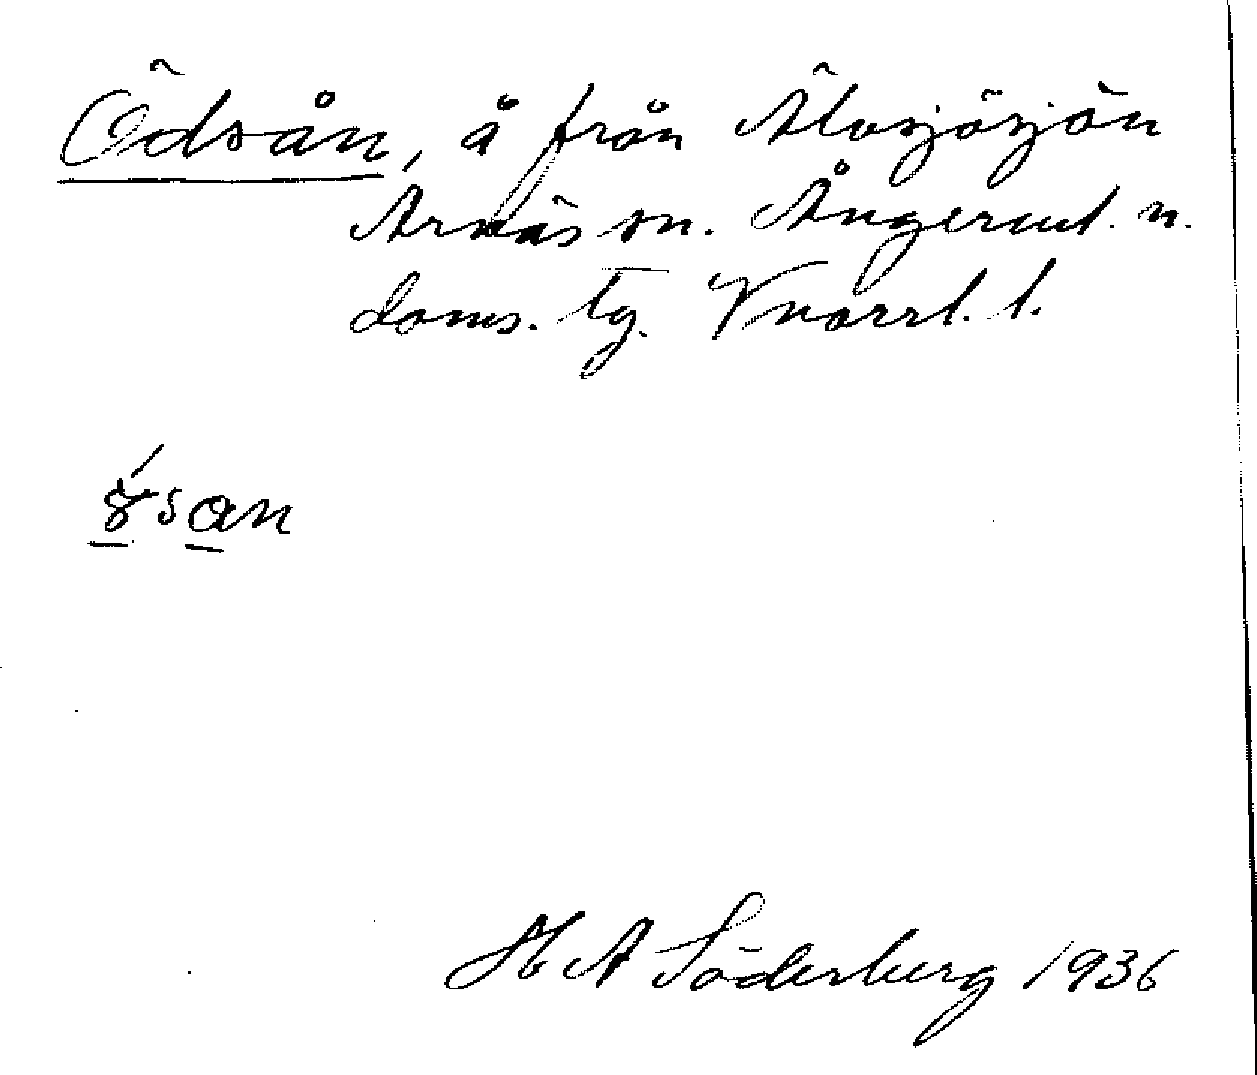 Ödsån, å från Älvsjösjön
Arnäs sn. Ångerml. n.
doms. tg. Vnorrl. l.
ŏ́san
H A Söderberg 1936